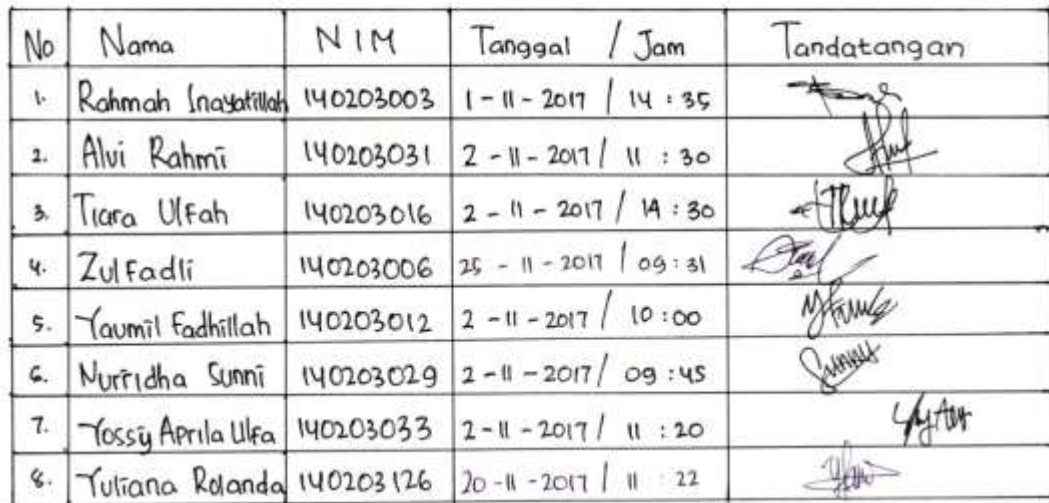 No Nama NIM Tanggal / Jam Tandatangan
1. Rahmah Inayatillah 140203003 1-11-2017 / 14:35
2. Alvi Rahmi 140203031 2-11-2017 / 11:30
3. Tiara Ulfah 140203016 2-11-2017 / 14:30
4. Zulfadli 140203006 25-11-2017 / 09:31
5. Yaumil Fadhillah 140203012 2-11-2017 / 10:00
6. Nurridha Sunni 140203029 2-11-2017 / 09:45
7. Yossiy Aprila Ulfa 140203033 2-11-2017 / 11:20
8. Yuliana Rolanda 140203126 20-11-2017 / 11:22